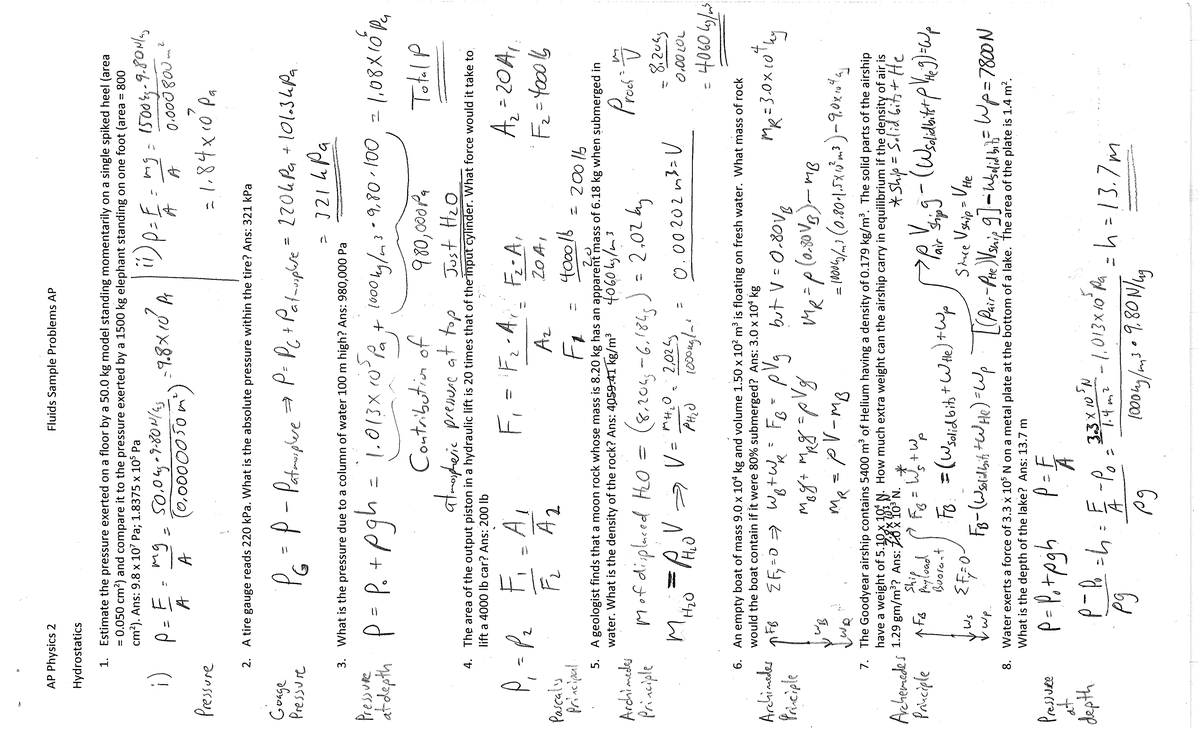 AP Physics 2 Fluids Sample Problems AP
Hydrostatics
1. Estimate the pressure exerted on a floor by a 50.0 kg model standing momentarily on a single spiked heel (area
= 0.050 cm²) and compare it to the pressure exerted by a 1500 kg elephant standing on one foot (area = 800
cm²). Ans: 9.8 x 10⁷ Pa; 1.8375 x 10⁵ Pa
i) P = F/A = mg/A = 50.0kg·9.80N/kg / (0.0000050m²) = 9.8 x 10⁷ Pa
ii) P = F/A = mg/A = 1500kg·9.80N/kg / 0.000800m²
= 1.84 x 10⁷ Pa
Pressure
2. A tire gauge reads 220 kPa. What is the absolute pressure within the tire? Ans: 321 kPa
Gauge
Pressure
P_G = P - P_atmosphere ⇒ P = P_G + P_atmosphere = 220kPa + 101.3kPa
= 321 kPa
3. What is the pressure due to a column of water 100 m high? Ans: 980,000 Pa
Pressure
at depth
P = P₀ + ρgh = 1.013 x 10⁵ Pa + 1000kg/m³·9.80·100 = 1.08 x 10⁶ Pa
Contribution of
atmospheric pressure at top
980,000Pa
Just H₂O
Total P
4. The area of the output piston in a hydraulic lift is 20 times that of the input cylinder. What force would it take to
lift a 4000 lb car? Ans: 200 lb
P₁ = P₂
F₁/F₂ = A₁/A₂
F₁ = F₂·A₁/A₂ = F₂·A₁/20A₁
F₁ = 4000lb/20 = 200 lb
A₂ = 20A₁
F₂ = 4000 lb
Pascal's
Principal
5. A geologist finds that a moon rock whose mass is 8.20 kg has an apparent mass of 6.18 kg when submerged in
water. What is the density of the rock? Ans: 4059.41 kg/m³ 4060 kg/m³
Archimedes
Principle
M of displaced H₂O = (8.20kg - 6.18kg) = 2.02kg
M_H₂O = ρ_H₂O V ⇒ V = m_H₂O/ρ_H₂O = 2.02kg/1000kg/m³ = 0.00202 m³ = V
ρ_rock = m/V
= 8.20kg/0.00202
= 4060 kg/m³
6. An empty boat of mass 9.0 x 10⁴ kg and volume 1.50 x 10² m³ is floating on fresh water. What mass of rock
would the boat contain if it were 80% submerged? Ans: 3.0 x 10⁴ kg
Archimedes
Principle
↑F_B
↓W_B
↓W_R
ΣF_y=0 ⇒ W_B + W_R = F_B = ρVg but V = 0.80V_B
m_B g + m_R g = ρVg
m_R = ρV - m_B
m_R = ρ(0.80V_B) - m_B
= 1000kg/m³(0.80·1.5x10²m³) - 9.0x10⁴kg
m_R = 3.0x10⁴ kg
7. The Goodyear airship contains 5400 m³ of Helium having a density of 0.179 kg/m³. The solid parts of the airship
have a weight of 5.10 x 10⁴ N. How much extra weight can the airship carry in equilibrium if the density of air is
1.29 gm/m³? Ans: 7.8 x 10³ N.
Archemedes
Principle
* Ship = Solid bits + He
↑F_B
↓W_S
↓W_P
Ship
Payload
Buoyant
ΣF_y=0
F_B = W_S* + W_P
F_B = (W_solidbits + W_He) + W_P
F_B - (W_solidbits + W_He) = W_P
ρ_air V_ship g - (W_solidbits + ρV_He g) = W_P
Since V_ship = V_He
[(ρ_air - ρ_He)V_ship g] - W_solidbits = W_P = 7800N
8. Water exerts a force of 3.3 x 10⁵ N on a metal plate at the bottom of a lake. The area of the plate is 1.4 m².
What is the depth of the lake? Ans: 13.7 m
Pressure
at
depth
P = P₀ + ρgh P = F/A
P - P₀ / ρg = h = F/A - P₀ / ρg = 3.3 x 10⁵N/1.4 m² - 1.013 x 10⁵ Pa / 1000kg/m³ · 9.80 N/kg = h = 13.7 m